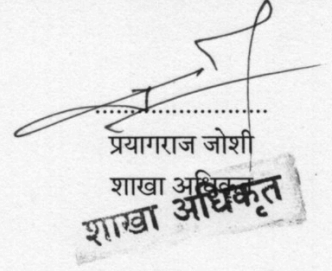 प्रयागराज जोशी
शाखा अधिकृत
शाखा अधिकृत